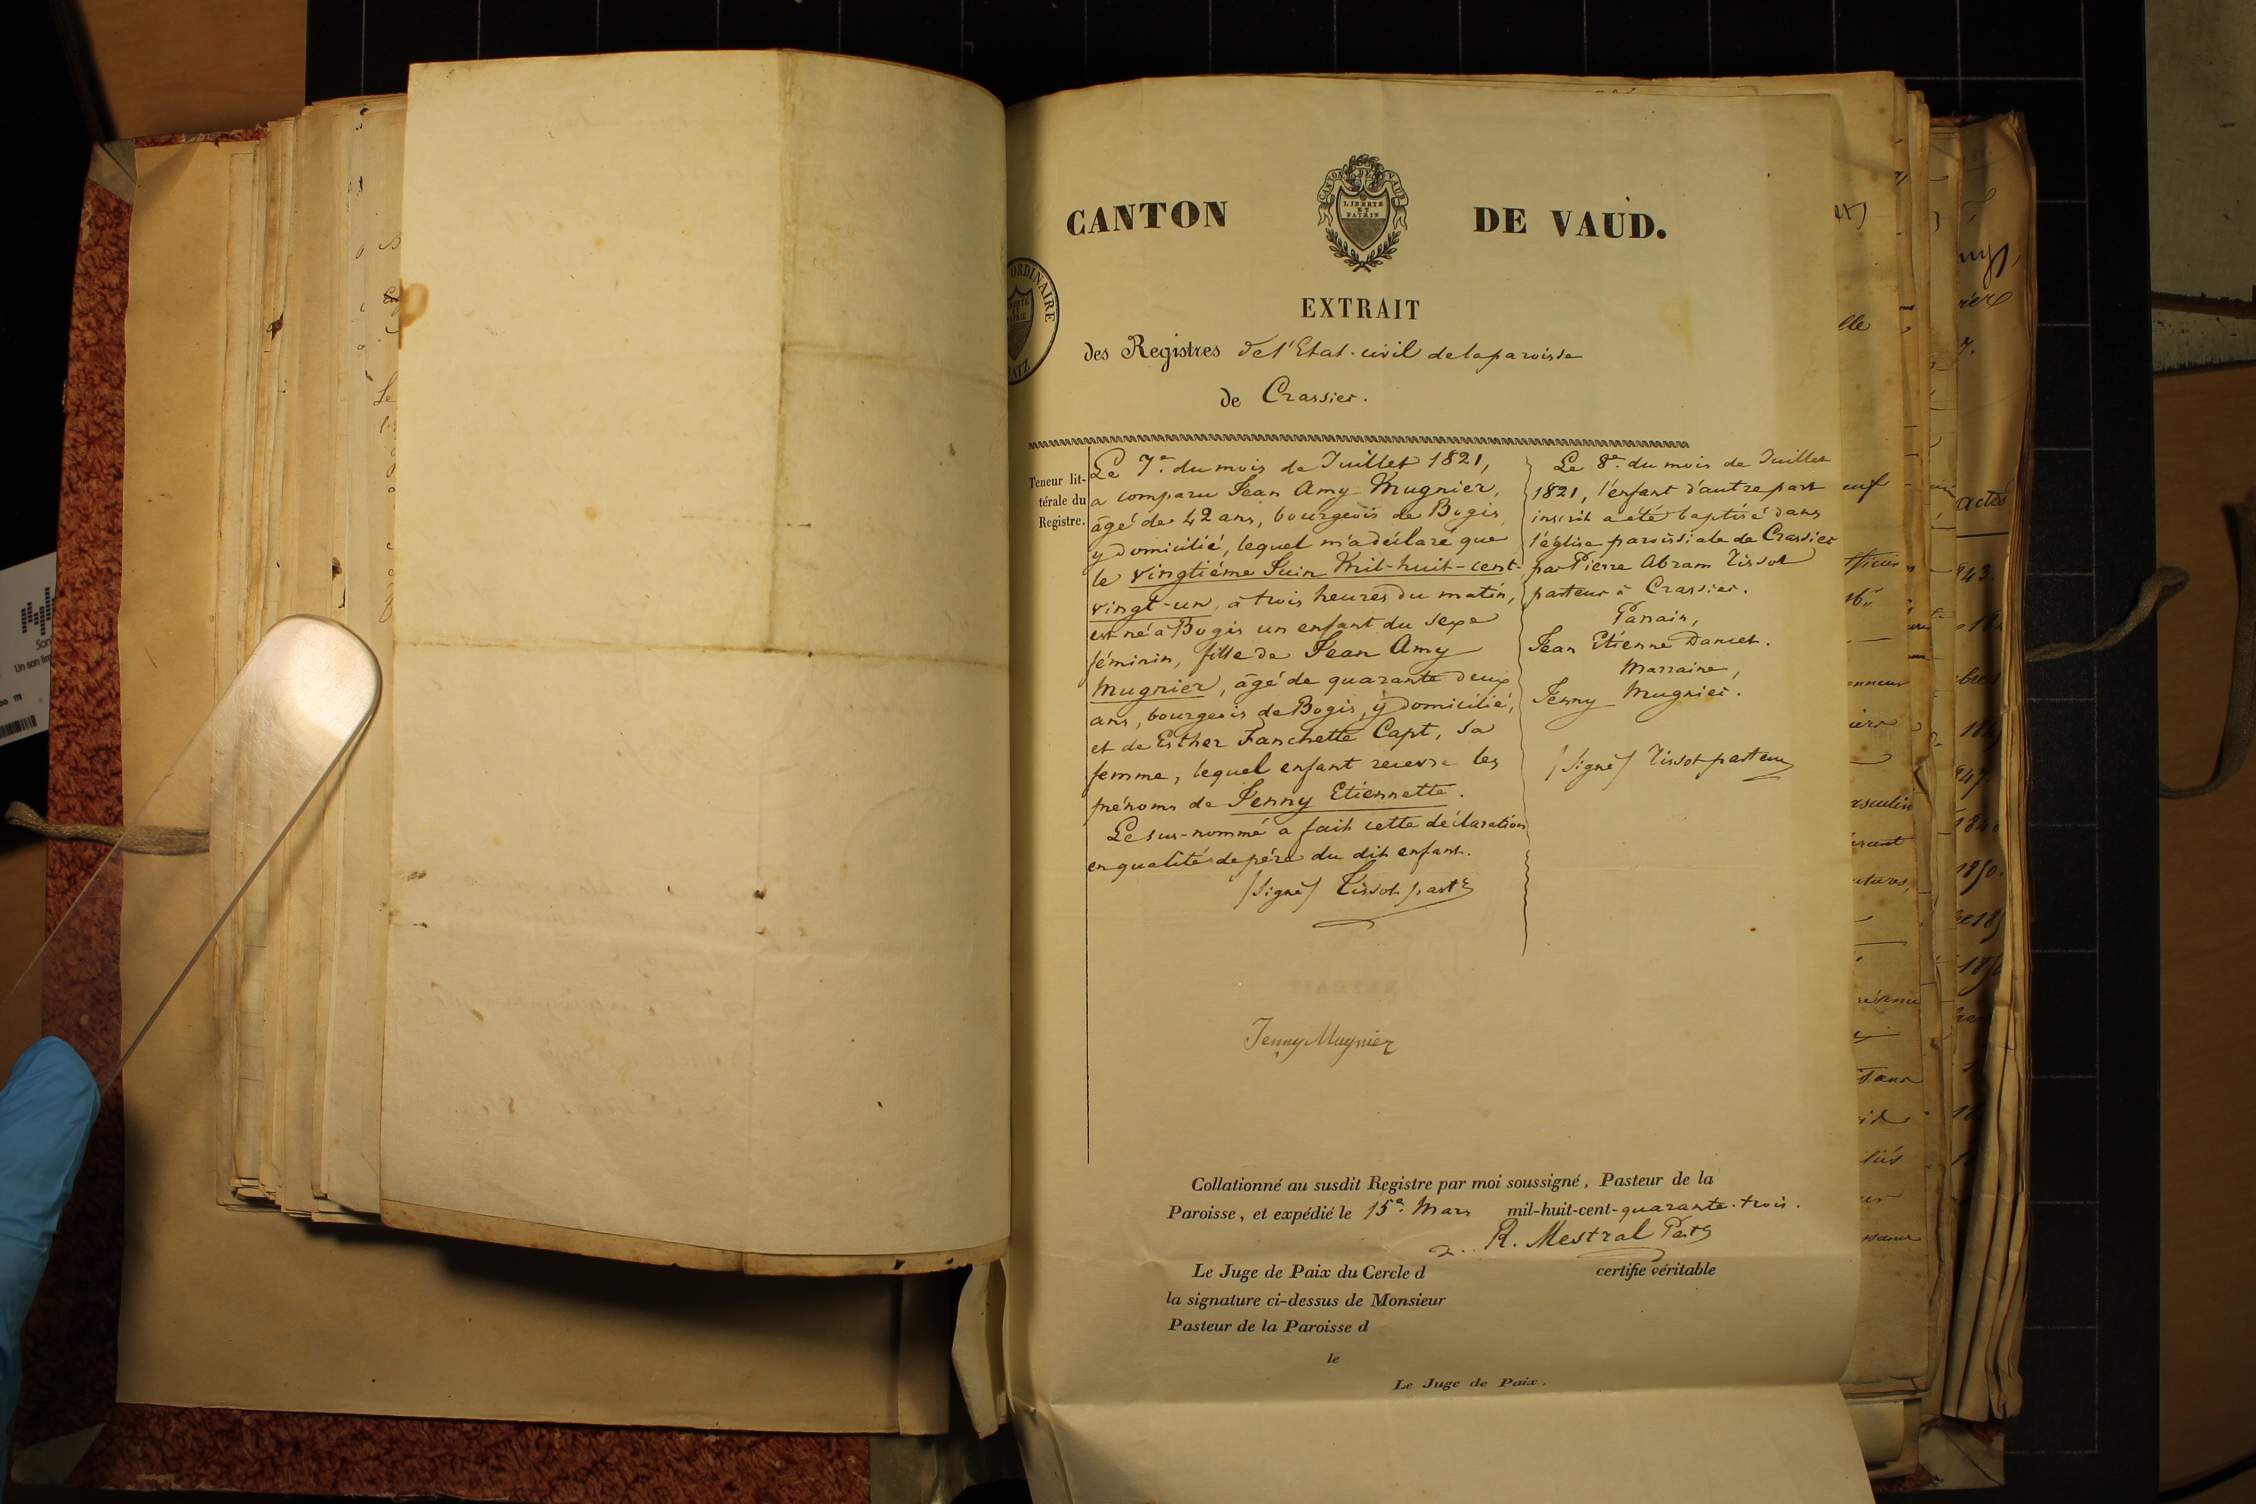 CANTON DE VAUD.
CANTON DE VAUD
LIBERTÉ
ET
PATRIE
ORDINAIRE
EXTRAIT
des Registres de l'Etat-civil de la paroisse
de Crassier.
Teneur lit-
térale du
Registre.
Le 7e. du mois de Juillet 1821,
a comparu Jean Amy Mugnier,
âgé de 42 ans, bourgeois de Bogis,
y domicilié, lequel m'a déclaré que
le vingtième Juin Mil-huit-cent-
vingt-un, à trois heures du matin,
est né à Bogis un enfant du sexe
féminin, fille de Jean Amy
Mugnier, âgé de quarante deux
ans, bourgeois de Bogis, y domicilié,
et de Esther Fanchette Capt, sa
femme, lequel enfant recevra les
prénoms de Jenny Etiennette.
Le sus-nommé a fait cette déclaration
en qualité de père du dit enfant.
/Signé/ Tissot past.r
Le 8e. du mois de Juillet
1821, l'enfant d'autre part
inscrit a été baptisé dans
l'église paroissiale de Crassier
par Pierre Abram Tissot
pasteur à Crassier.
Parrain,
Jean Etienne Dancet.
Marraine,
Jenny Mugnier.
/Signé/ Tissot pasteur
Jenny Mugnier
Collationné au susdit Registre par moi soussigné, Pasteur de la
Paroisse, et expédié le 15e. Mars mil-huit-cent-quarante-trois.
R. Mestral Past.r
Le Juge de Paix du Cercle d certifie véritable
la signature ci-dessus de Monsieur
Pasteur de la Paroisse d
le
Le Juge de Paix.